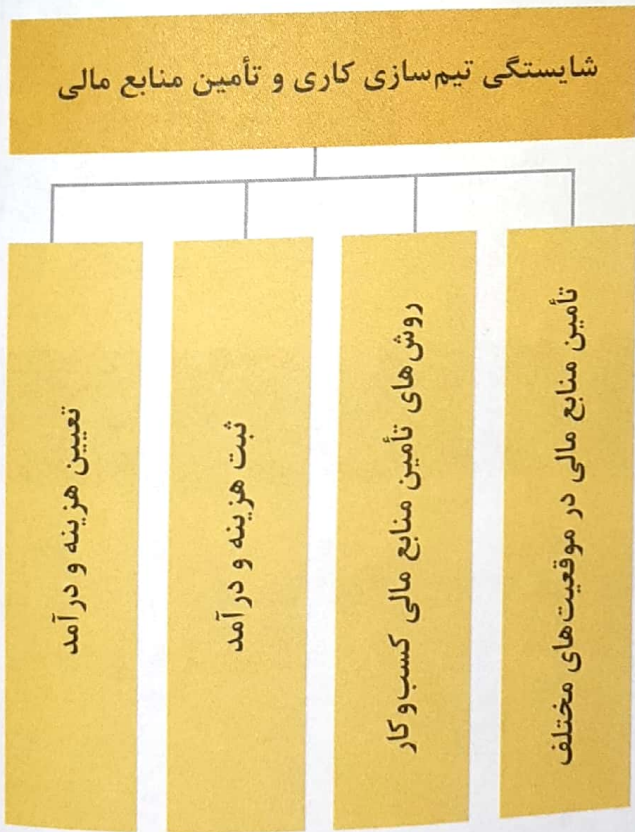 شایستگی تیم‌سازی کاری و تأمین منابع مالی
تأمین منابع مالی در موقعیت‌های مختلف
روش‌های تأمین منابع مالی کسب‌وکار
ثبت هزینه و درآمد
تعیین هزینه و درآمد